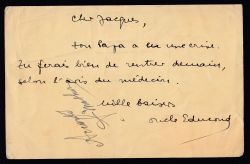 Cher Jacques,
ton papa a eu une crise.
Tu ferais bien de rentrer demain,
selon l'avis du médecin.
Mille baisers
oncle Edmond